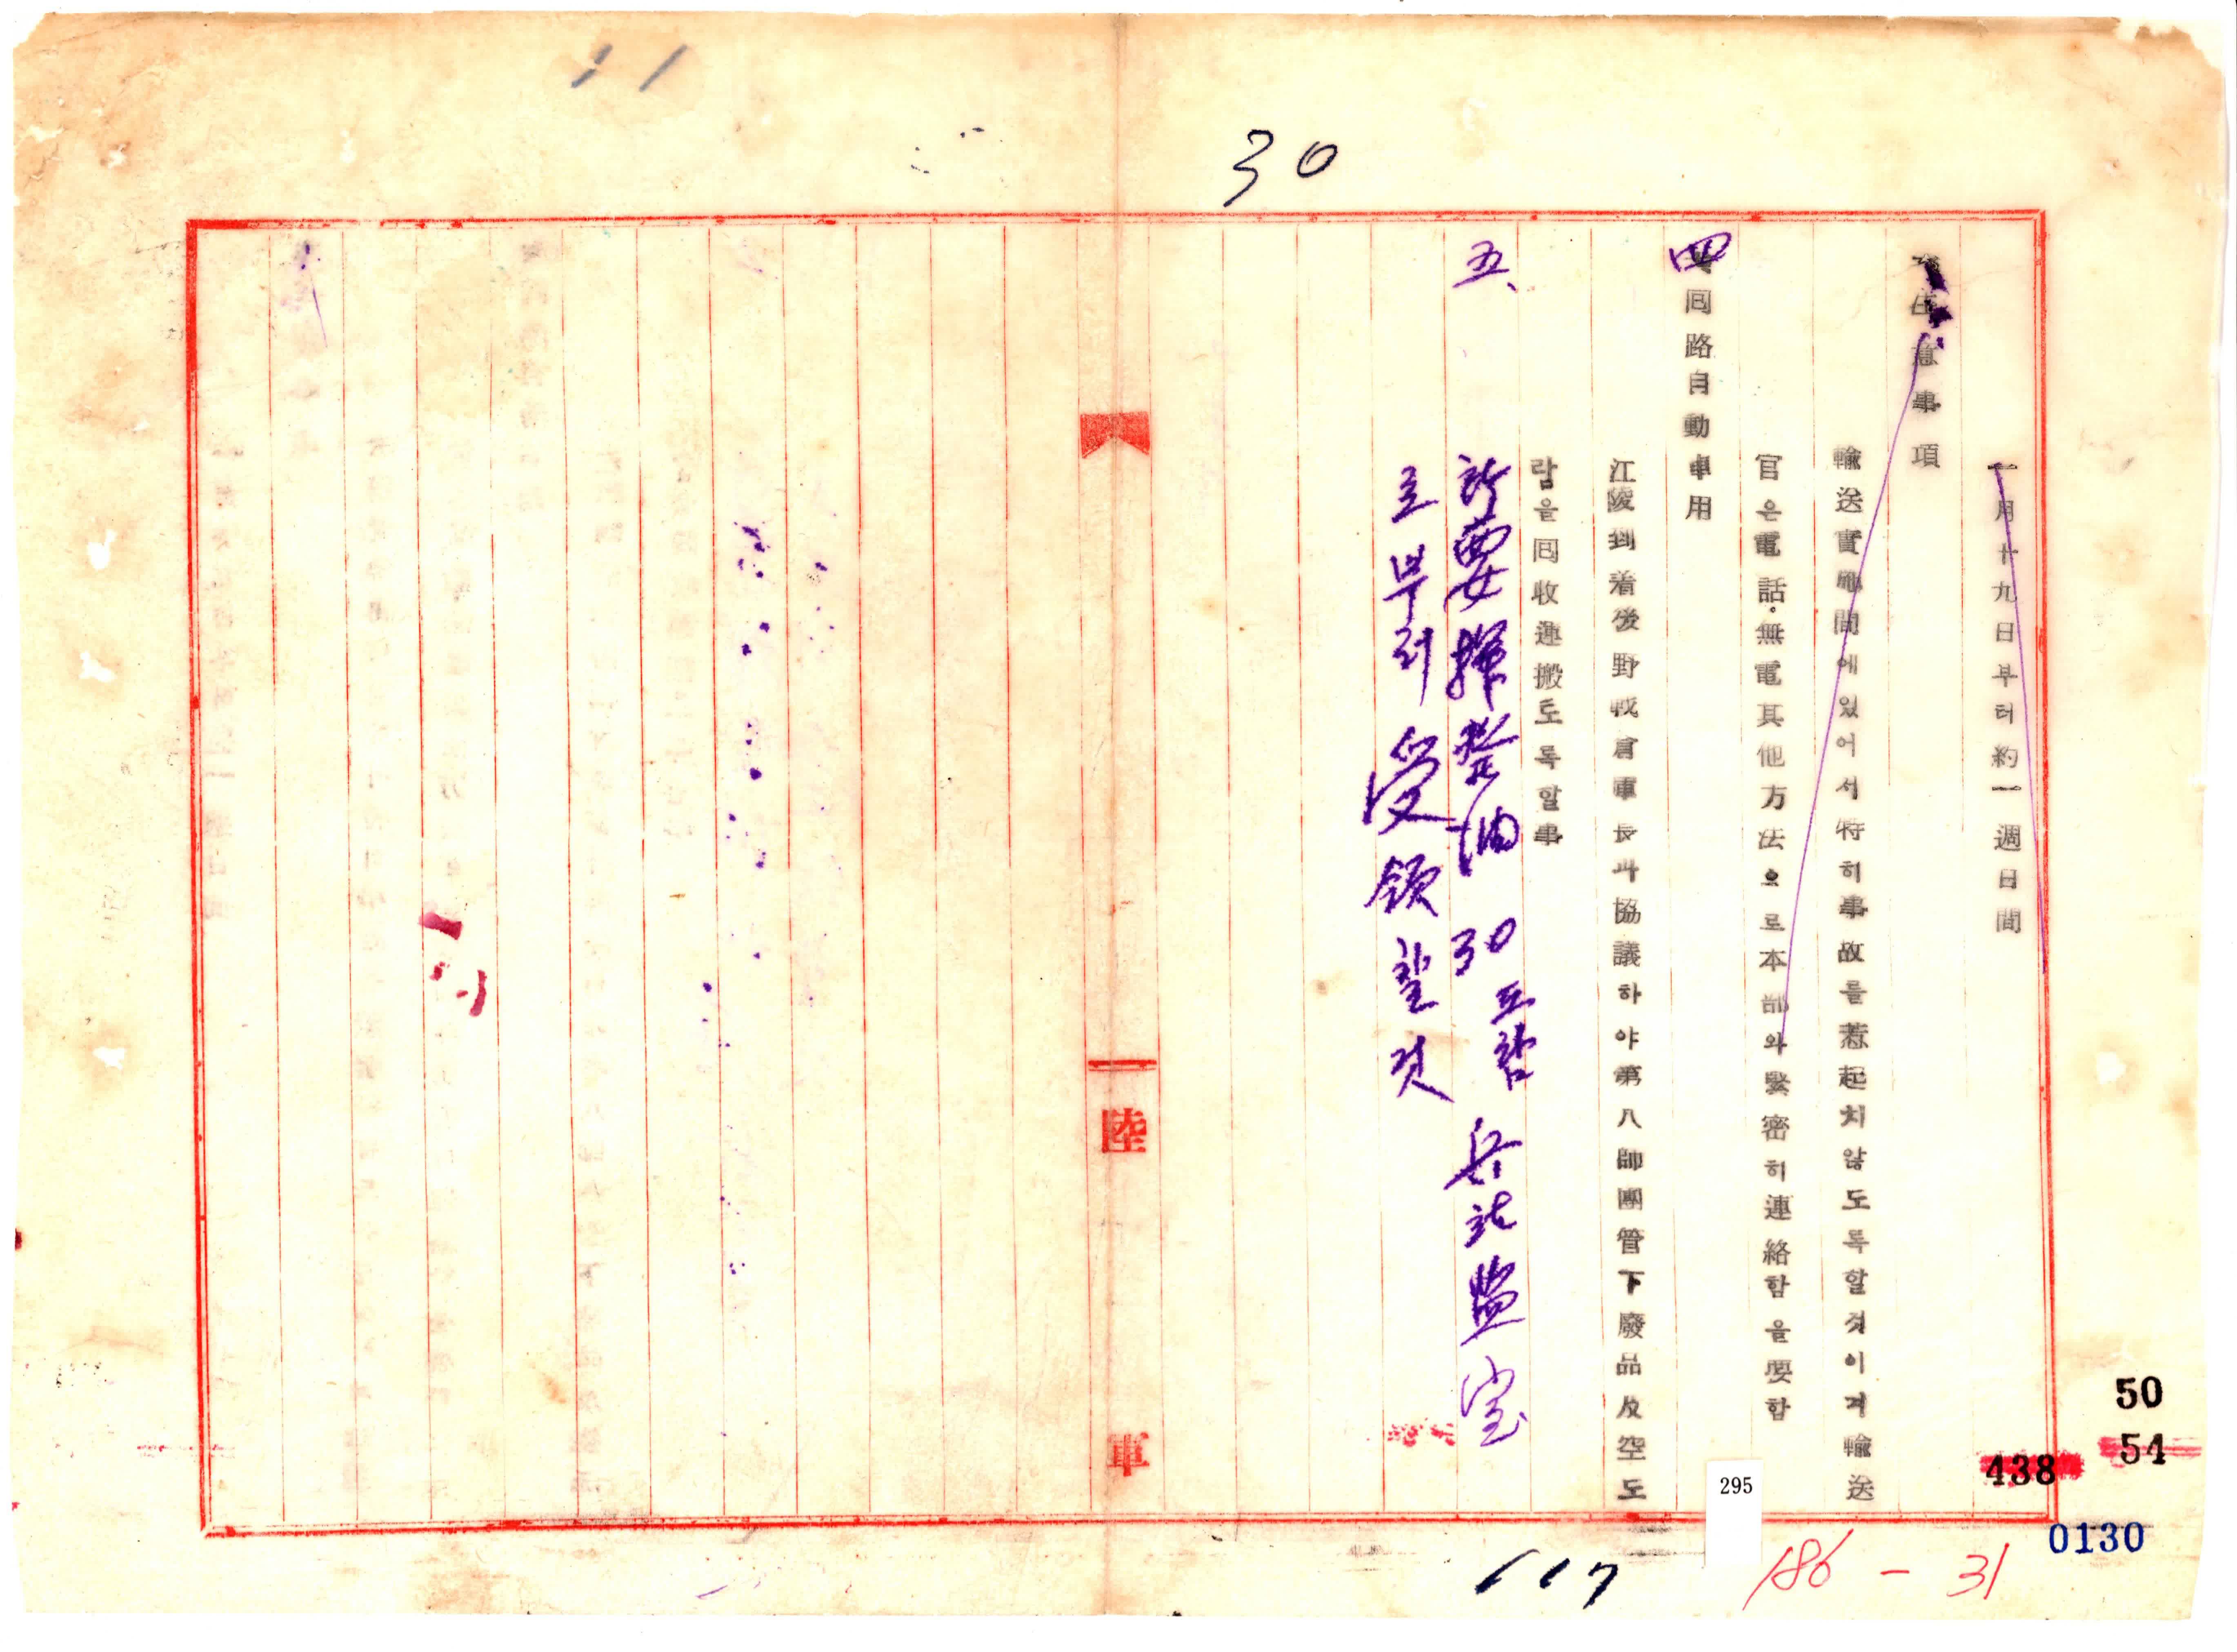 一月十九日부터約一週日間
注意事項
輸送實施間에있어서特히事故를惹起치않도록할것이며輸送
官은電話·無電其他方法으로本部와緊密히連絡함을要함
四 回路自動車用
江陵到着後野戰倉庫長과協議하야第八師團管下廢品及空도
람을回收運搬토록할事
五、 所要揮發油 30도람 兵站監室
로부터受領할것
陸軍
30
50
54
438
0130
295
117
186-31
11